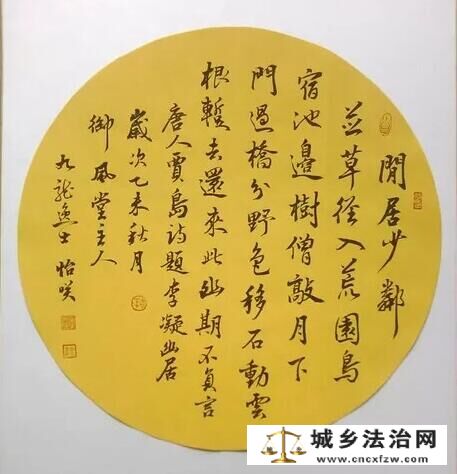 閒居少鄰
並草徑入荒園鳥
宿池邊樹僧敲月下
門過橋分野色移石動雲
根暫去還來此幽期不負言
唐人賈島詩題李凝幽居
歲次乙未秋月
御風堂主人
九龍逸士 怡咲
城乡法治网
www.cncxfzw.com